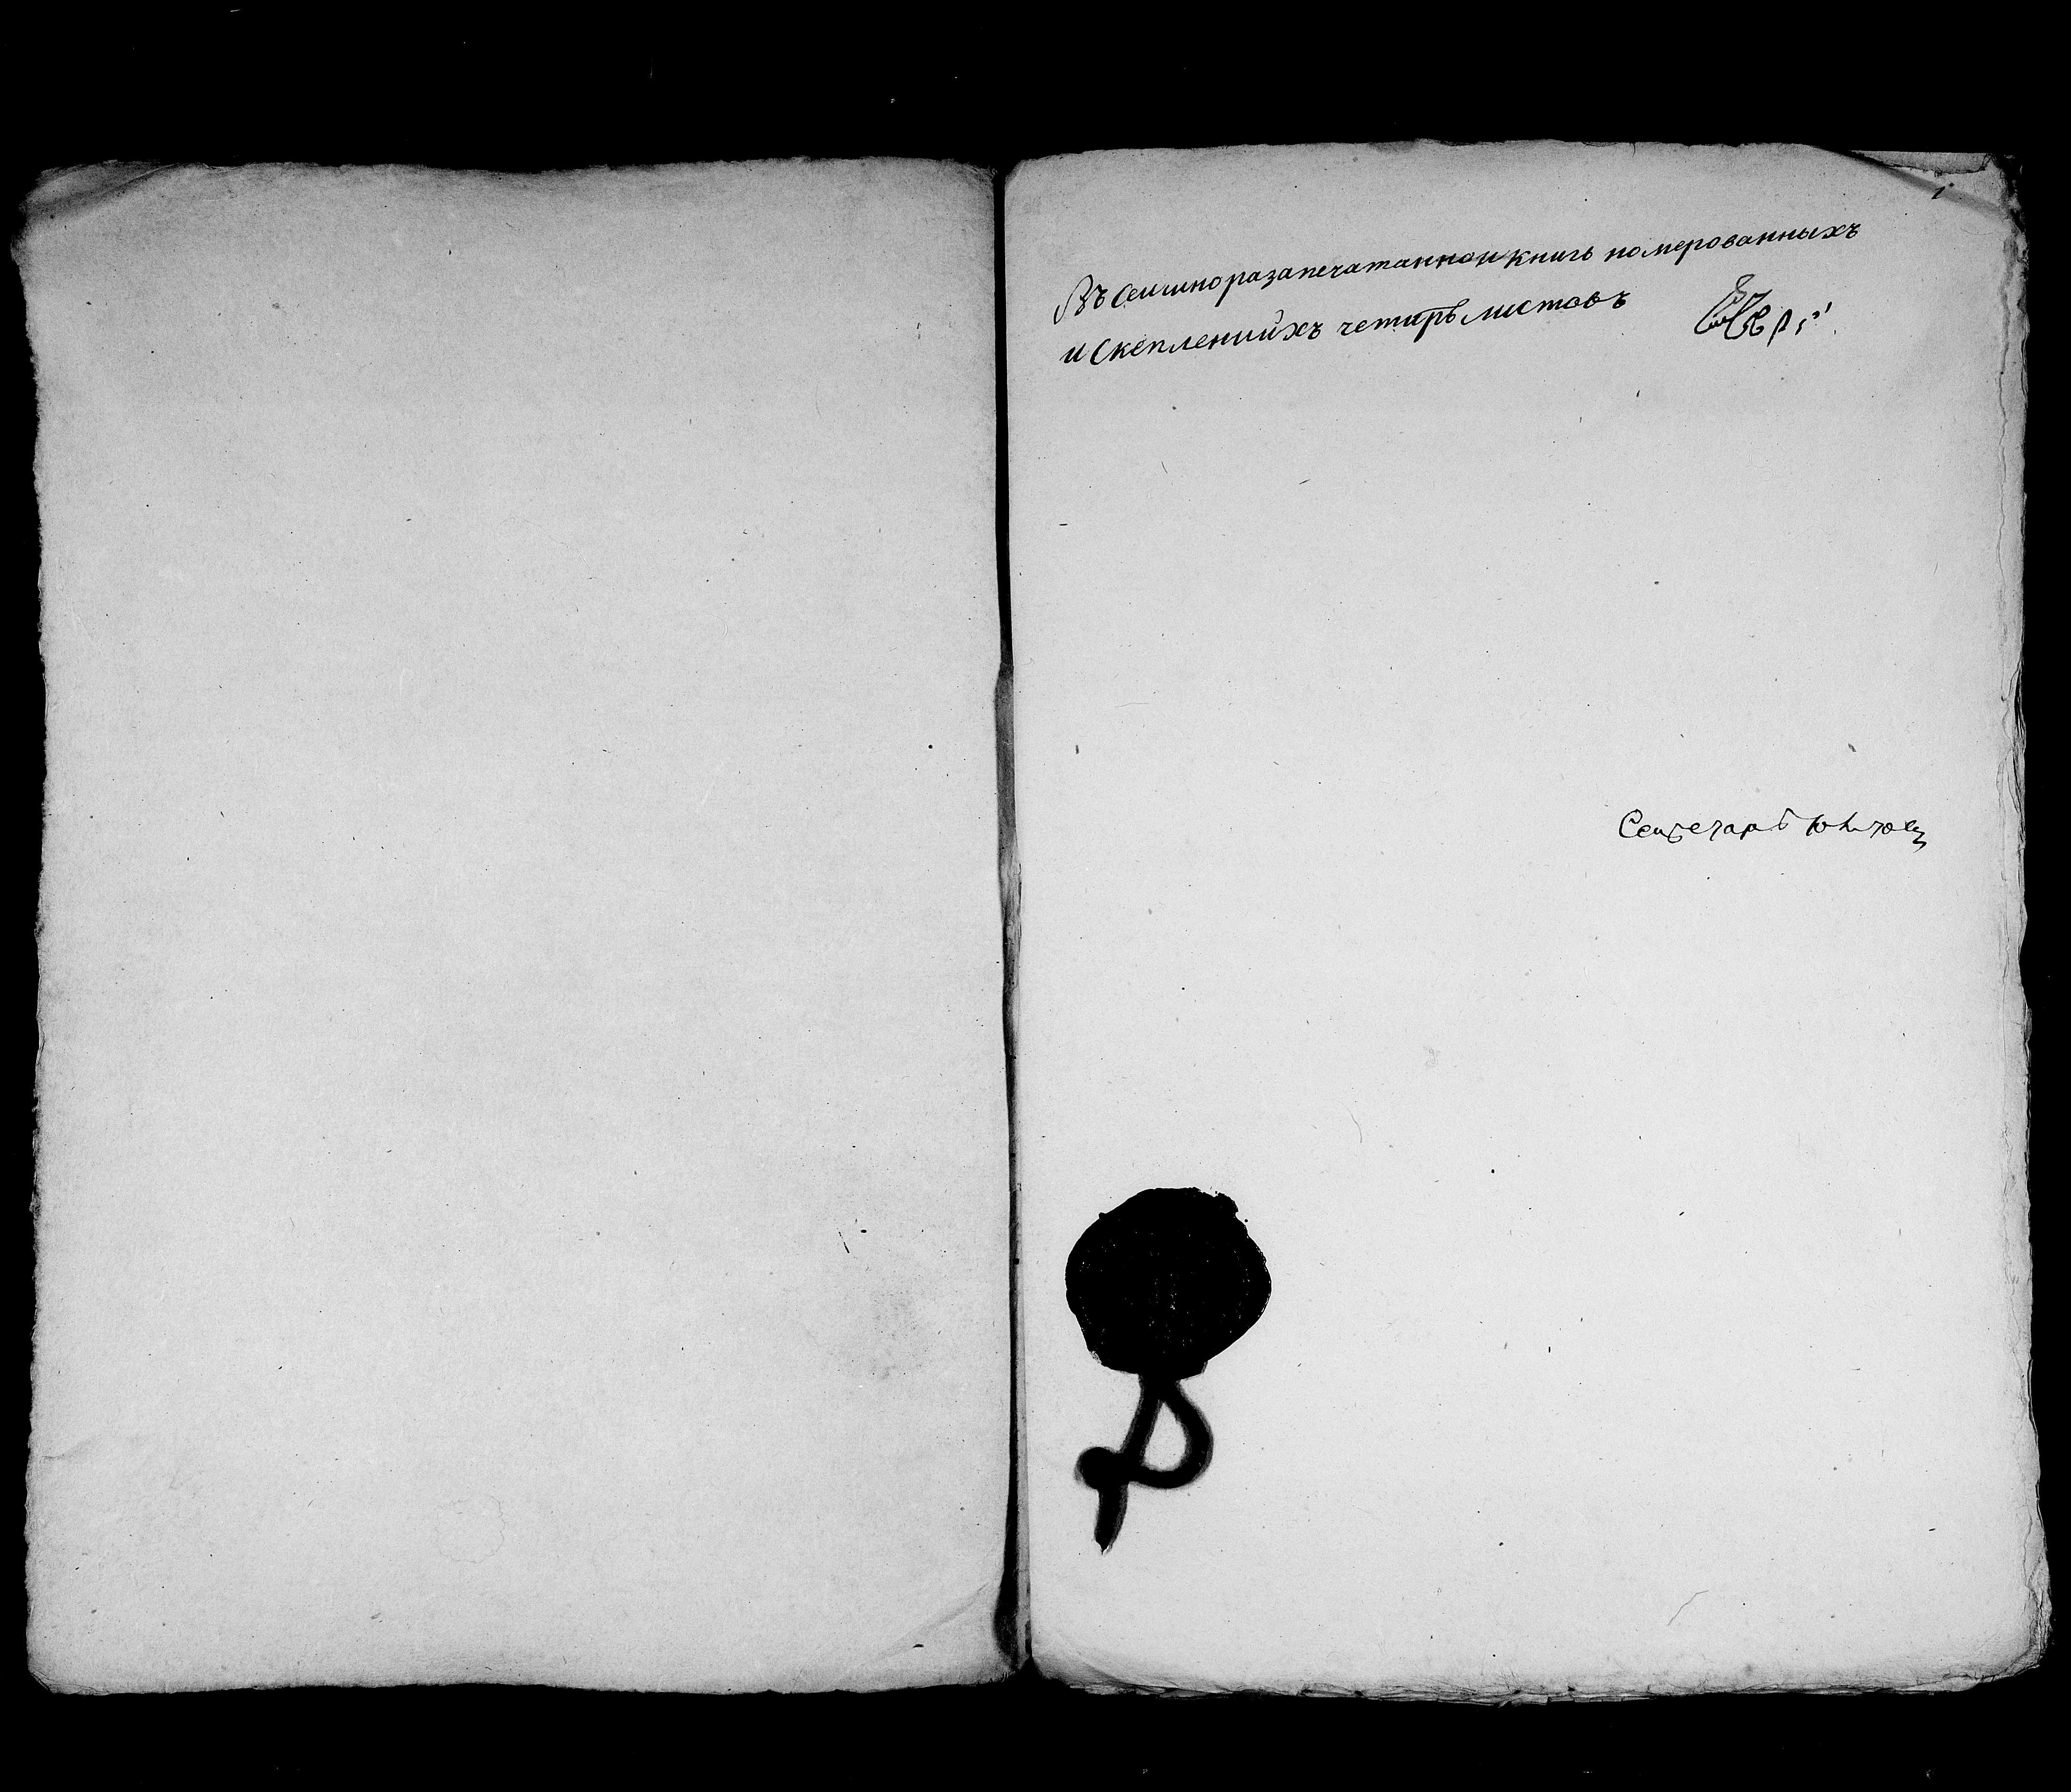 1
Въ сей шноразапечатанной книгѣ номерованныхъ
и скепленийхъ четирѣ листовъ
Секретарь